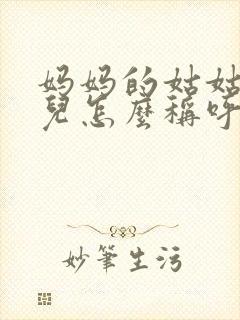 妈妈的姑姑
兒怎麼稱呼
妙筆生污